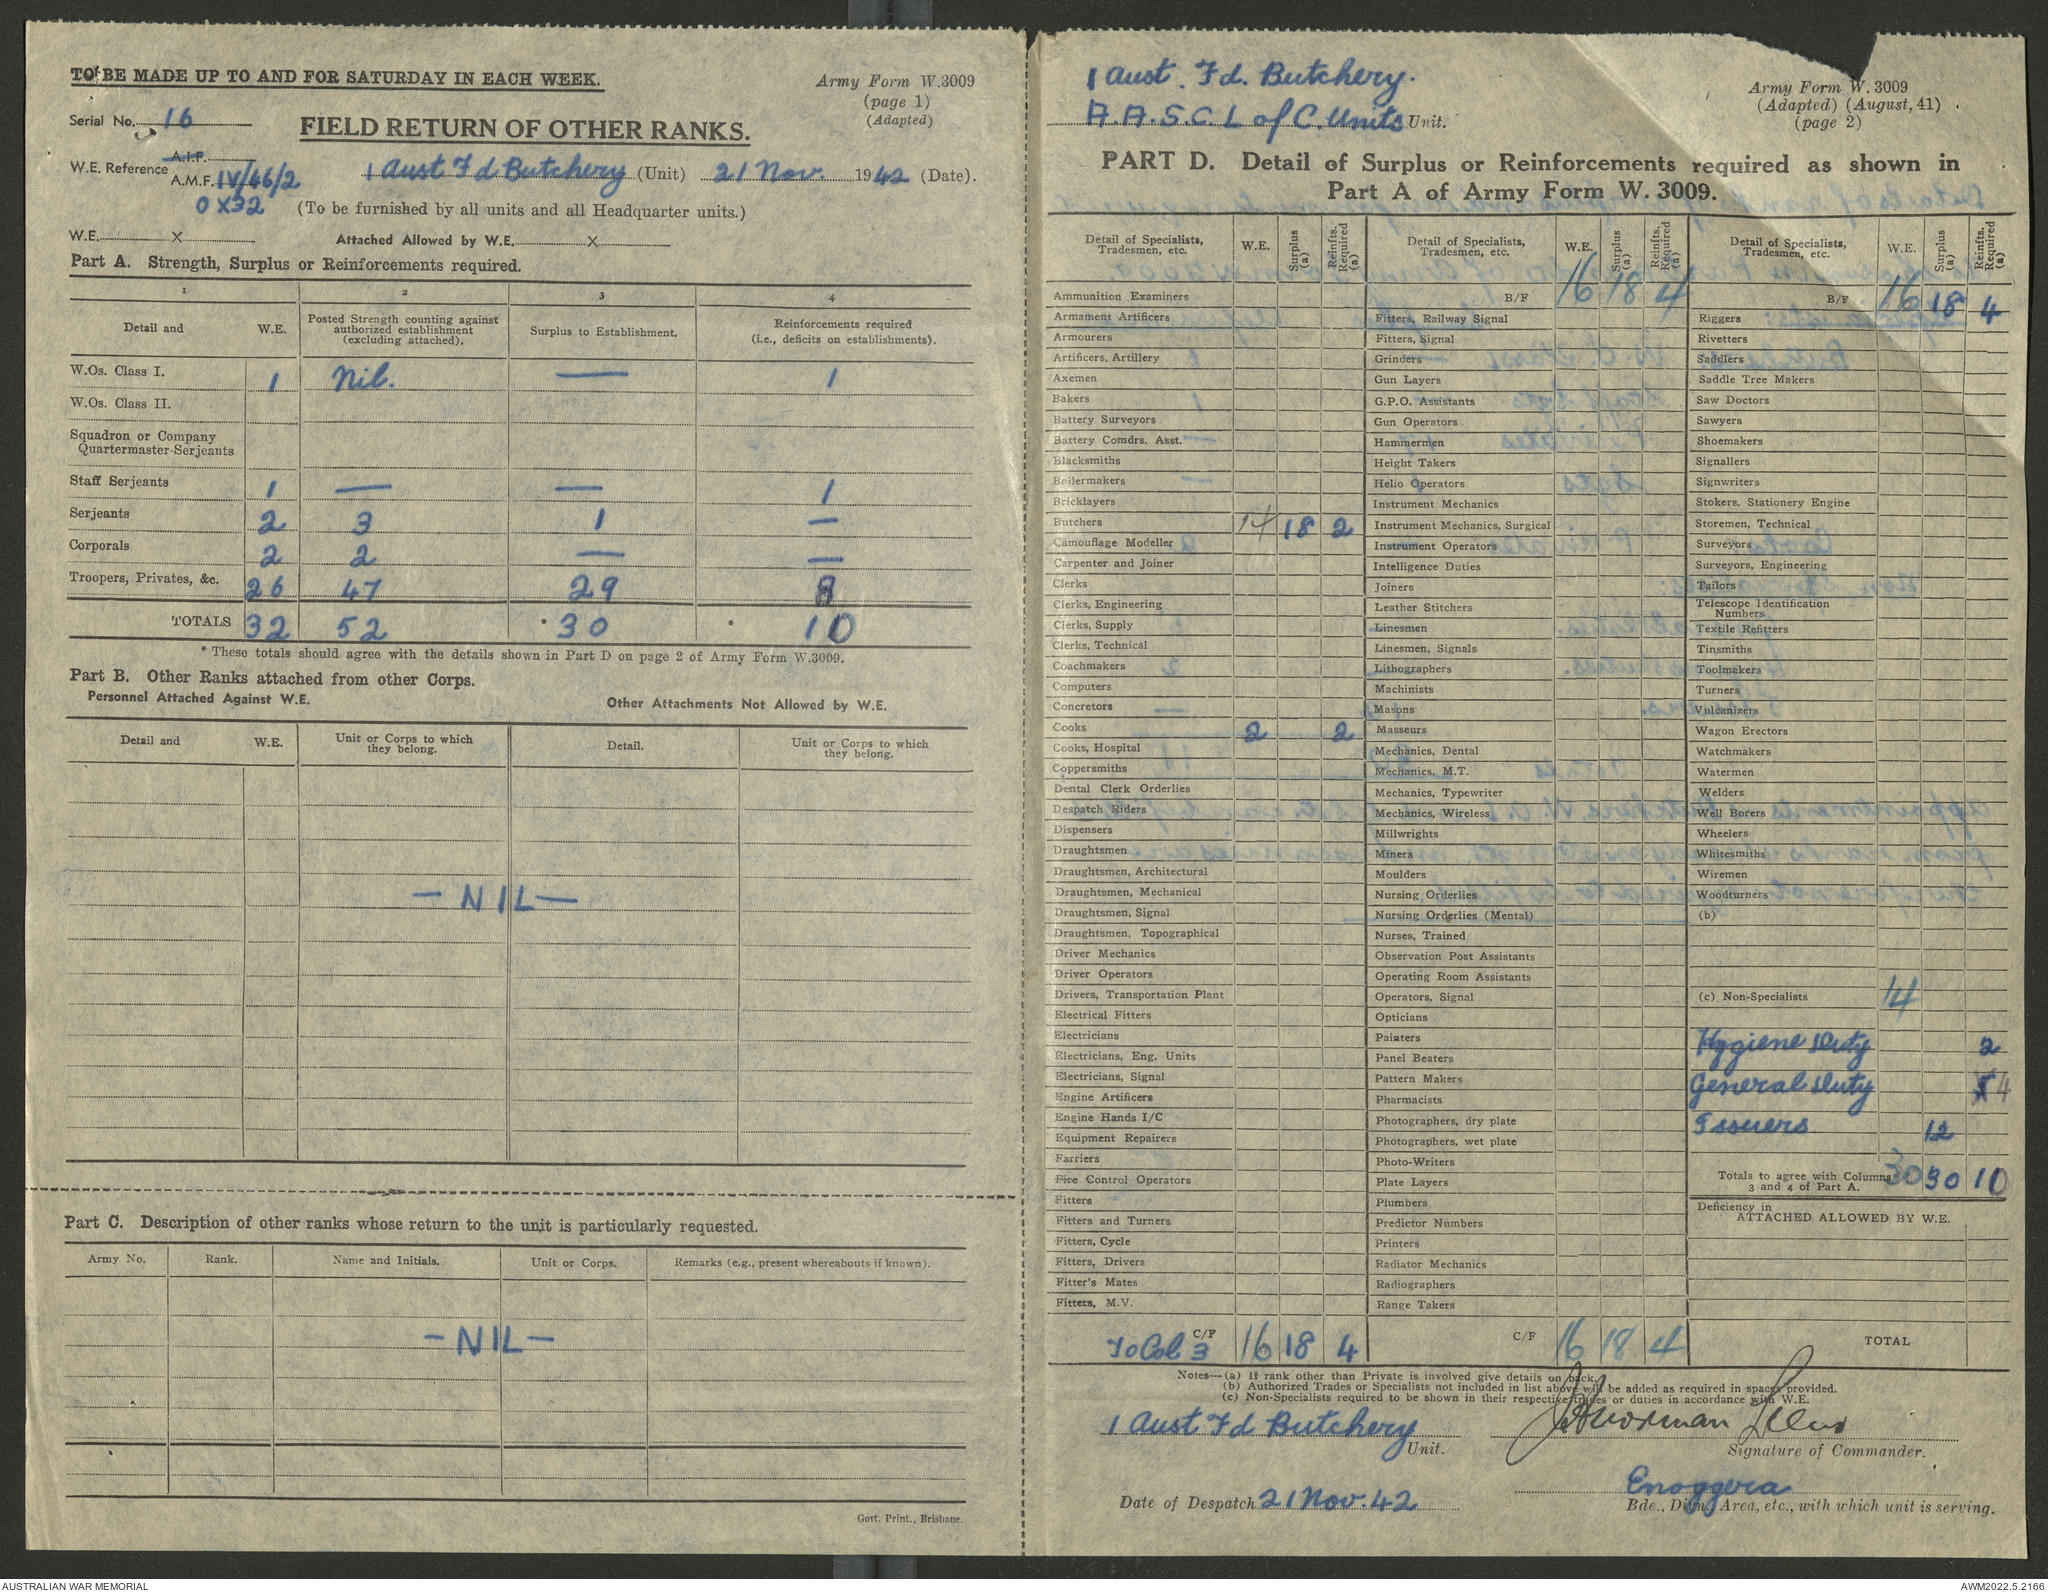 TO BE MADE UP TO AND FOR SATURDAY IN EACH WEEK.
Army Form W.3009
(page 1)
(Adapted)
Serial No. 16
FIELD RETURN OF OTHER RANKS.
W.E. Reference A.I.F.
A.M.F. IV/46/2
0 X32
1 Aust Fd Butchery (Unit) 21 Nov. 1942 (Date).
(To be furnished by all units and all Headquarter units.)
W.E. X Attached Allowed by W.E. X
Part A. Strength, Surplus or Reinforcements required.
1 2 3 4
Detail and W.E. Posted Strength counting against authorized establishment (excluding attached). Surplus to Establishment. Reinforcements required (i.e., deficits on establishments).
W.Os. Class I. 1 Nil. — 1
W.Os. Class II.
Squadron or Company
Quartermaster-Serjeants
Staff Serjeants 1 — — 1
Serjeants 2 3 1 —
Corporals 2 2 — —
Troopers, Privates, &c. 26 47 29 8
TOTALS 32 52 * 30 * 10
* These totals should agree with the details shown in Part D on page 2 of Army Form W.3009.
Part B. Other Ranks attached from other Corps.
Personnel Attached Against W.E. Other Attachments Not Allowed by W.E.
Detail and W.E. Unit or Corps to which they belong. Detail. Unit or Corps to which they belong.
— NIL —
Part C. Description of other ranks whose return to the unit is particularly requested.
Army No. Rank. Name and Initials. Unit or Corps. Remarks (e.g., present whereabouts if known).
— NIL —
Govt. Print., Brisbane.
1 Aust. Fd. Butchery.
A.A.S.C. L of C. Units Unit.
Army Form W. 3009
(Adapted) (August, 41)
(page 2)
PART D. Detail of Surplus or Reinforcements required as shown in
Part A of Army Form W. 3009.
Detail of Specialists, Tradesmen, etc. W.E. Surplus (a) Reinfts. Required (a)
Ammunition Examiners
Armament Artificers
Armourers
Artificers, Artillery
Axemen
Bakers
Battery Surveyors
Battery Comdrs. Asst.
Blacksmiths
Boilermakers
Bricklayers
Butchers 14 18 2
Camouflage Modeller
Carpenter and Joiner
Clerks
Clerks, Engineering
Clerks, Supply
Clerks, Technical
Coachmakers
Computers
Concretors
Cooks 2 2
Cooks, Hospital
Coppersmiths
Dental Clerk Orderlies
Despatch Riders
Dispensers
Draughtsmen
Draughtsmen, Architectural
Draughtsmen, Mechanical
Draughtsmen, Signal
Draughtsmen, Topographical
Driver Mechanics
Driver Operators
Drivers, Transportation Plant
Electrical Fitters
Electricians
Electricians, Eng. Units
Electricians, Signal
Engine Artificers
Engine Hands I/C
Equipment Repairers
Farriers
Fire Control Operators
Fitters
Fitters and Turners
Fitters, Cycle
Fitters, Drivers
Fitter's Mates
Fitters, M.V.
To Col 3 C/F 16 18 4
Detail of Specialists, Tradesmen, etc. W.E. Surplus (a) Reinfts. Required (a)
B/F 16 18 4
Fitters, Railway Signal
Fitters, Signal
Grinders
Gun Layers
G.P.O. Assistants
Gun Operators
Hammermen
Height Takers
Helio Operators
Instrument Mechanics
Instrument Mechanics, Surgical
Instrument Operators
Intelligence Duties
Joiners
Leather Stitchers
Linesmen
Linesmen, Signals
Lithographers
Machinists
Masons
Masseurs
Mechanics, Dental
Mechanics, M.T.
Mechanics, Typewriter
Mechanics, Wireless
Millwrights
Miners
Moulders
Nursing Orderlies
Nursing Orderlies (Mental)
Nurses, Trained
Observation Post Assistants
Operating Room Assistants
Operators, Signal
Opticians
Painters
Panel Beaters
Pattern Makers
Pharmacists
Photographers, dry plate
Photographers, wet plate
Photo-Writers
Plate Layers
Plumbers
Predictor Numbers
Printers
Radiator Mechanics
Radiographers
Range Takers
C/F 16 18 4
Detail of Specialists, Tradesmen, etc. W.E. Surplus (a) Reinfts. Required (a)
B/F 16 18 4
Riggers
Rivetters
Saddlers
Saddle Tree Makers
Saw Doctors
Sawyers
Shoemakers
Signallers
Signwriters
Stokers, Stationery Engine
Storemen, Technical
Surveyors
Surveyors, Engineering
Tailors
Telescope Identification
Numbers
Textile Refitters
Tinsmiths
Toolmakers
Turners
Vulcanizers
Wagon Erectors
Watchmakers
Watermen
Welders
Well Borers
Wheelers
Whitesmiths
Wiremen
Woodturners
(b)
(c) Non-Specialists 14
Hygiene Duty 2
General Duty 4
Issuers 12
Totals to agree with Columns
3 and 4 of Part A. 30 30 10
Deficiency in
ATTACHED ALLOWED BY W.E.
TOTAL
Notes—(a) If rank other than Private is involved give details on back.
(b) Authorized Trades or Specialists not included in list above will be added as required in spaces provided.
(c) Non-Specialists required to be shown in their respective trades or duties in accordance with W.E.
1 Aust Fd Butchery Unit.
Signature of Commander.
Date of Despatch 21 Nov. 42
Enoggera
Bde., Divn., Area, etc., with which unit is serving.
AUSTRALIAN WAR MEMORIAL
AWM2022.5.2166